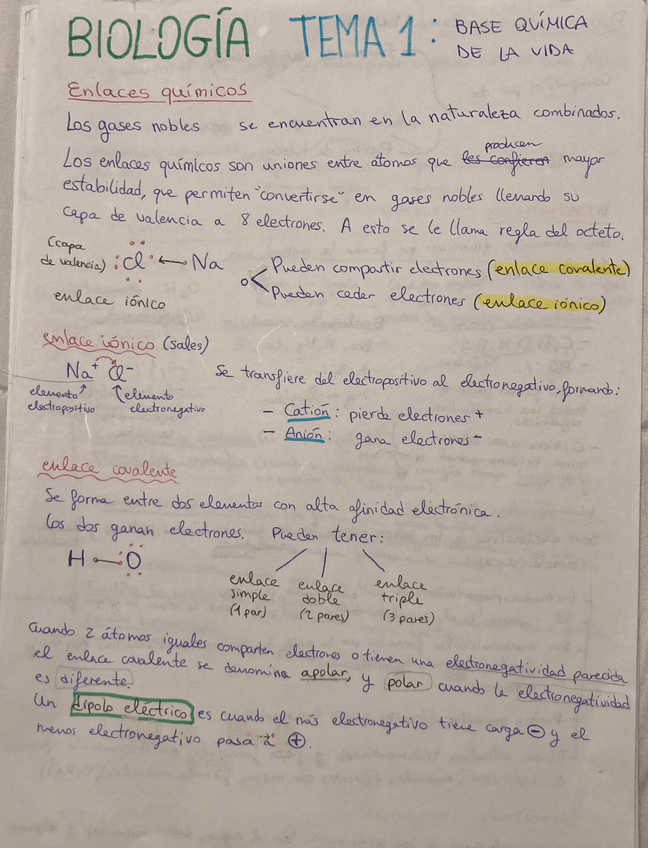 BIOLOGÍA TEMA 1: BASE QUÍMICA
DE LA VIDA
Enlaces químicos
Los gases nobles se encuentran en la naturaleza combinados.
Los enlaces químicos son uniones entre átomos que les confieren producen mayor
estabilidad, que permiten "convertirse" en gases nobles llenando su
capa de valencia a 8 electrones. A esto se le llama regla del octeto.
(capa
de valencia) Cl ← Na
enlace iónico
Pueden compartir electrones (enlace covalente)
o <
Pueden ceder electrones (enlace iónico)
enlace iónico (sales)
Na+ Cl-
elemento electropositivo
elemento electronegativo
Se transfiere del electropositivo al electronegativo, formando:
- Catión: pierde electrones +
- Anión: gana electrones -
enlace covalente
Se forma entre dos elementos con alta afinidad electrónica.
Los dos ganan electrones. Pueden tener:
H O
enlace simple (1 par)
enlace doble (2 pares)
enlace triple (3 pares)
Cuando 2 átomos iguales comparten electrones o tienen una electronegatividad parecida
el enlace covalente se denomina apolar, y polar cuando la electronegatividad
es diferente.
Un dipolo eléctrico es cuando el más electronegativo tiene carga ⊖ y el
menos electronegativo pasa a ⊕.